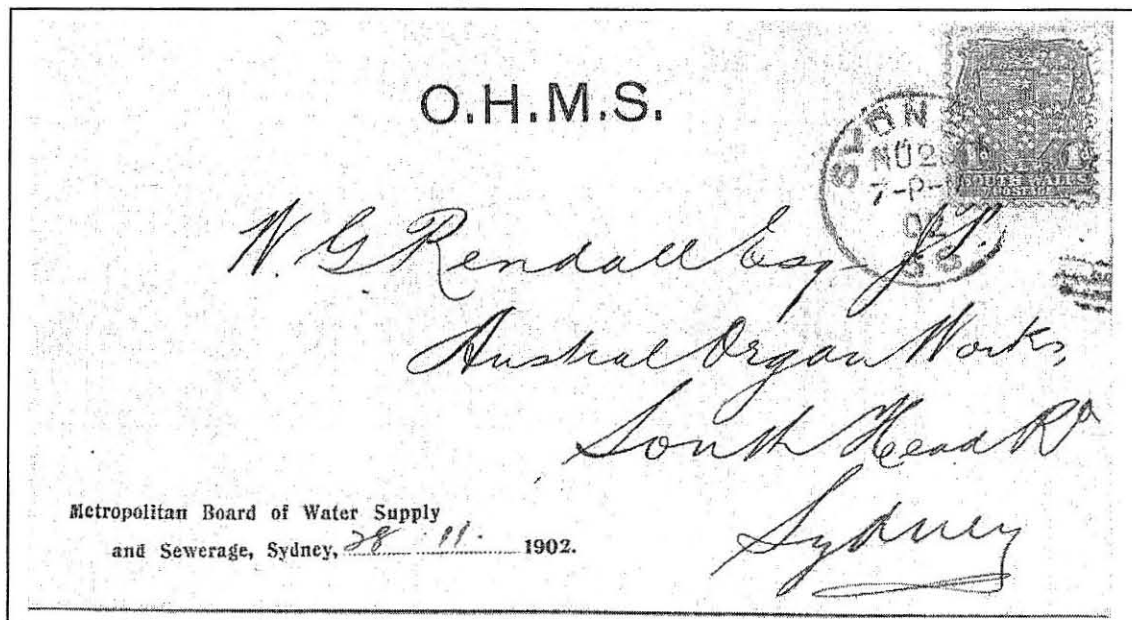 O.H.M.S.
SYDN
NO 28
7-P-
02
1d 1d
NEW
SOUTH WALES
POSTAGE
W. G Rendall Esq J.P.
Austral Organ Works,
South Head Rd
Sydney
Metropolitan Board of Water Supply
and Sewerage, Sydney, 28 11. 1902.